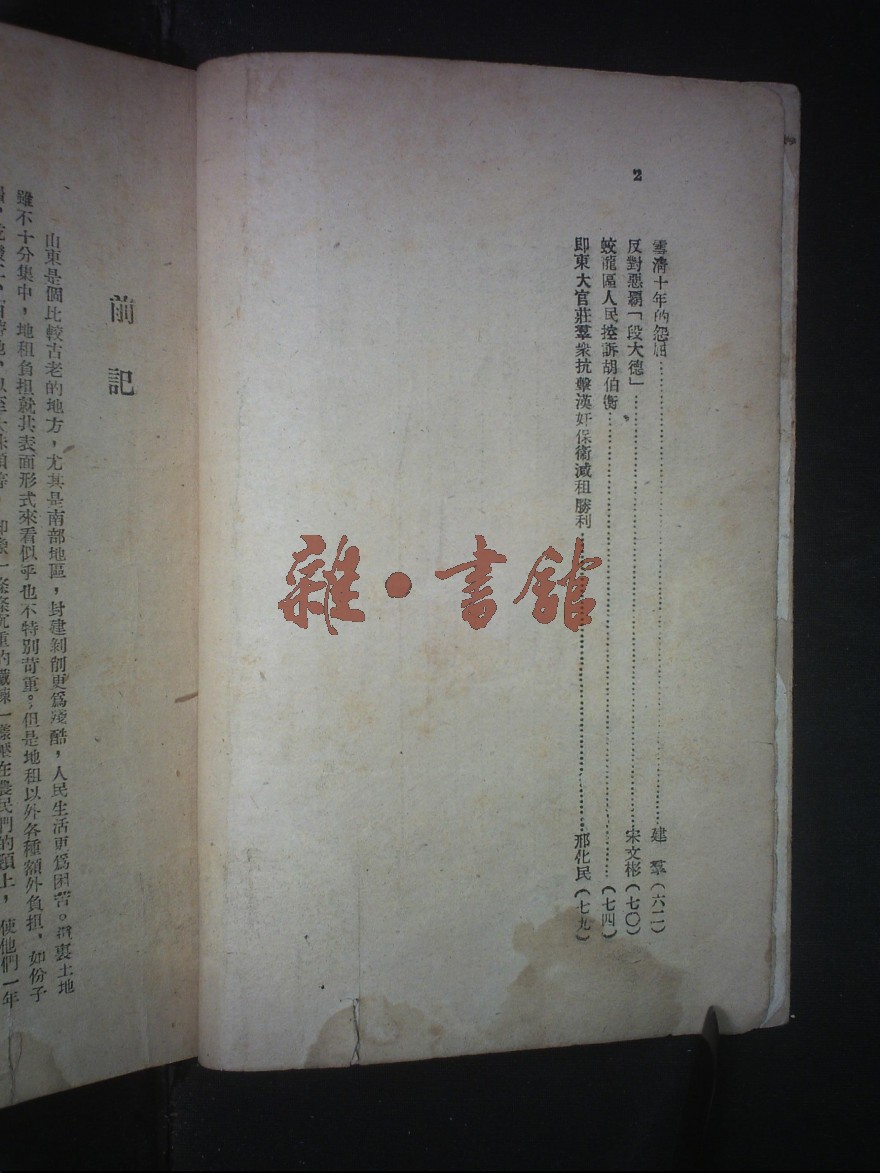 2
雪清十年的怨屈……建羣(六二)
反對惡霸「段大德」……宋文彬(七〇)
蛟龍區人民控訴胡伯衡……(七四)
即東大官莊羣衆抗擊漢奸保衛減租勝利……邢化民(七九)
雜·書館
前記
山東是個比較古老的地方，尤其是南部地區，封建剝削更爲殘酷，人民生活更爲困苦。這裏土地
雖不十分集中，地租負担就其表面形式來看似乎也不特別苛重。但是地租以外各種額外負担，如份子
一條條沉重的鐵鍊一樣壓在農民們的頭上，使他們一年